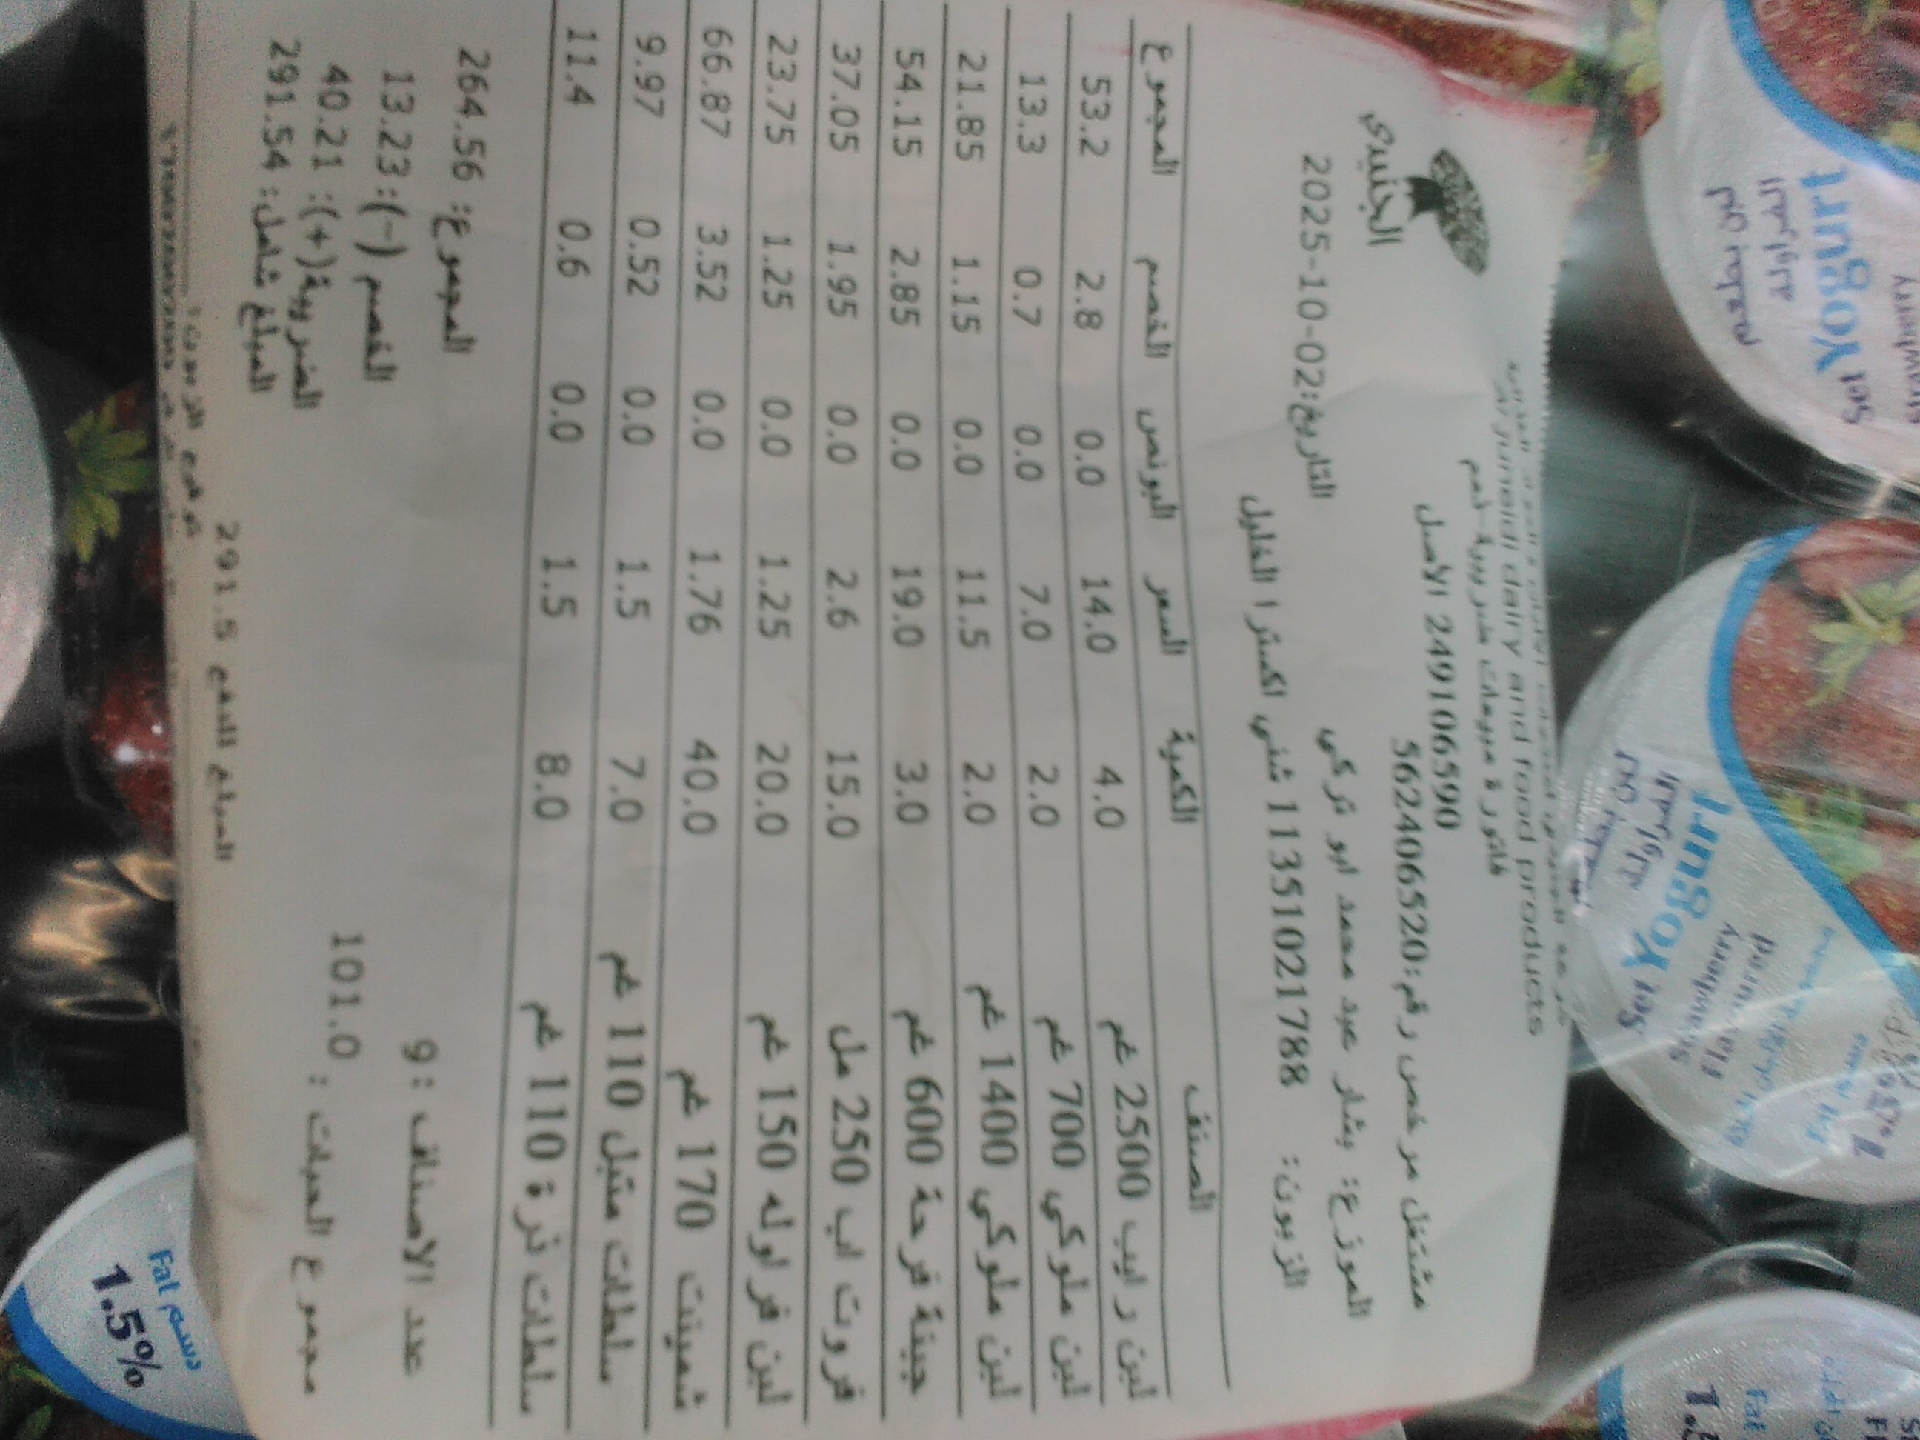 الجنيدي
Al juneidi dairy and food products
فاتورة مبيعات ضريبية-خصم
249106590 الاصل
مشتغل مرخص رقم:562406520
التاريخ:2025-10-02
الموزع: بشار عبد محمد ابو تركي
الزبون: 11351021788 شني اكسترا الخليل
الصنف الكمية السعر البونص الخصم المجموع
لبن رايب 2500 غم 4.0 14.0 0.0 2.8 53.2
لبن ملوكي 700 غم 2.0 7.0 0.0 0.7 13.3
لبن ملوكي 1400 غم 2.0 11.5 0.0 1.15 21.85
جبنة فرحة 600 غم 3.0 19.0 0.0 2.85 54.15
فروت اب 250 مل 15.0 2.6 0.0 1.95 37.05
لبن فراوله 150 غم 20.0 1.25 0.0 1.25 23.75
شمينت 170 غم 40.0 1.76 0.0 3.52 66.87
سلطات متبل 110 غم 7.0 1.5 0.0 0.52 9.97
سلطات ذرة 110 غم 8.0 1.5 0.0 0.6 11.4
عدد الاصناف : 9
مجموع الحبات : 101.0
المجموع: 264.56
الخصم (-):13.23
الضريبة(+): 40.21
المبلغ شامل: 291.54
المبلغ للدفع 291.5
Set Yogurt
Strawberry
Set Yogurt
Strawberry
Flavoured
الفراولة
دسم Fat
1.5%
Fat